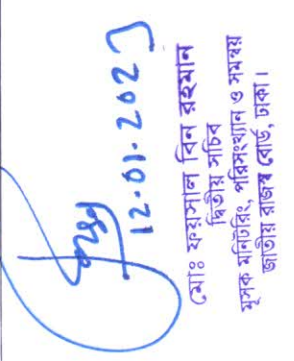 12.01.2023
মোঃ ফয়সাল বিন রহমান
দ্বিতীয় সচিব
মূসক মনিটরিং, পরিসংখ্যান ও সমন্বয়
জাতীয় রাজস্ব বোর্ড, ঢাকা।